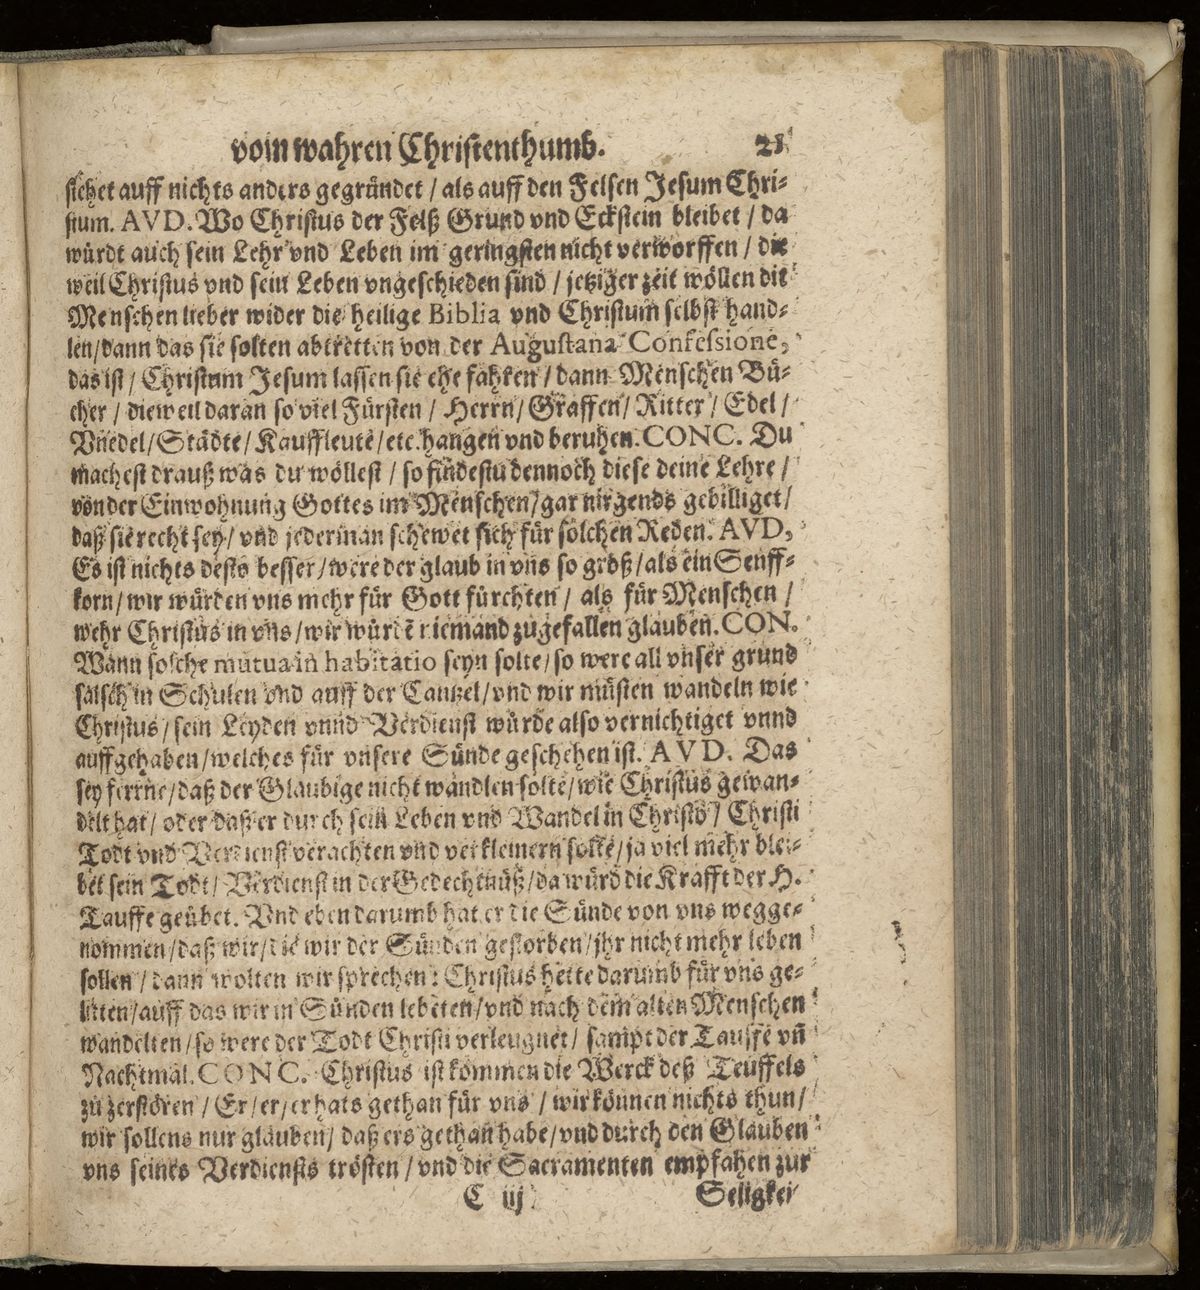 vom wahren Christenthumb. 21
stehet auff nichts anders gegründet / als auff den Felsen Jesum Chri⸗
stum. AVD. Wo Christus der Felß Grund vnd Eckstein bleibet / da
würdt auch sein Lehr vnd Leben im geringsten nicht verworffen / die
weil Christus vnd sein Leben vngeschieden sind / jetziger zeit wöllen die
Menschen lieber wider die heilige Biblia vnd Christum selbst hand⸗
len/dann das sie solten abtretten von der Augustana Confessione,
das ist / Christum Jesum lassen sie ehe fahren / dann Menschen Bü⸗
cher / dieweil daran so viel Fürsten / Herrn/ Graffen/ Ritter / Edel /
Vnedel/Städte/ Kauffleute/etc.hangen vnd beruhen. CONC. Du
machest drauß was du wöllest / so findestu dennoch diese deine Lehre /
von der Einwohnung Gottes im Menschen/gar nirgends gebilliget/
daß sie recht sey/ vnd jederman schewet sich für solchen Reden. AVD,
Es ist nichts desto besser/were der glaub in vns so groß/als ein Senff⸗
korn/wir würden vns mehr für Gott fürchten / als für Menschen /
wehr Christus in vns/wir würdē niemand zugefallen glauben. CON.
Wann solche mutua in habitatio seyn solte/so were all vnser grund
falsch in Schulen vnd auff der Cantzel/vnd wir müsten wandeln wie
Christus/sein Leyden vnnd Verdienst würde also vernichtiget vnnd
auffgehaben/welches für vnsere Sünde geschehen ist. AVD. Das
sey ferrne/daß der Glaubige nicht wandlen solte/wie Christus gewan⸗
delt hat/ oder daß er durch sein Leben vnd Wandel in Christo/ Christi
Todt vnd Verdienst verachten vnd verkleinern solte/ja viel mehr blei⸗
bet sein Todt/ Verdienst in der Gedechtnüß/da würd die Krafft der H.
Tauffe geübet. Vnd eben darumb hat er die Sünde von vns wegge⸗
nommen/daß wir/die wir der Sünden gestorben/jhr nicht mehr leben
sollen / dann wolten wir sprechen: Christus hette darumb für vns ge⸗
litten/auff das wir in Sünden lebeten/vnd nach dem alten Menschen
wandelten/so were der Todt Christi verleugnet/ sampt der Tauffe vñ
Nachtmal. CONC. Christus ist kommen die Werck deß Teuffels
zu zerstören / Er/er/er hats gethan für vns / wir können nichts thun/
wir sollens nur glauben/ daß ers gethan habe/vnd durch den Glauben
vns seines Verdiensts trösten/vnd die Sacramenten empfahen zur
C iij Seligkei